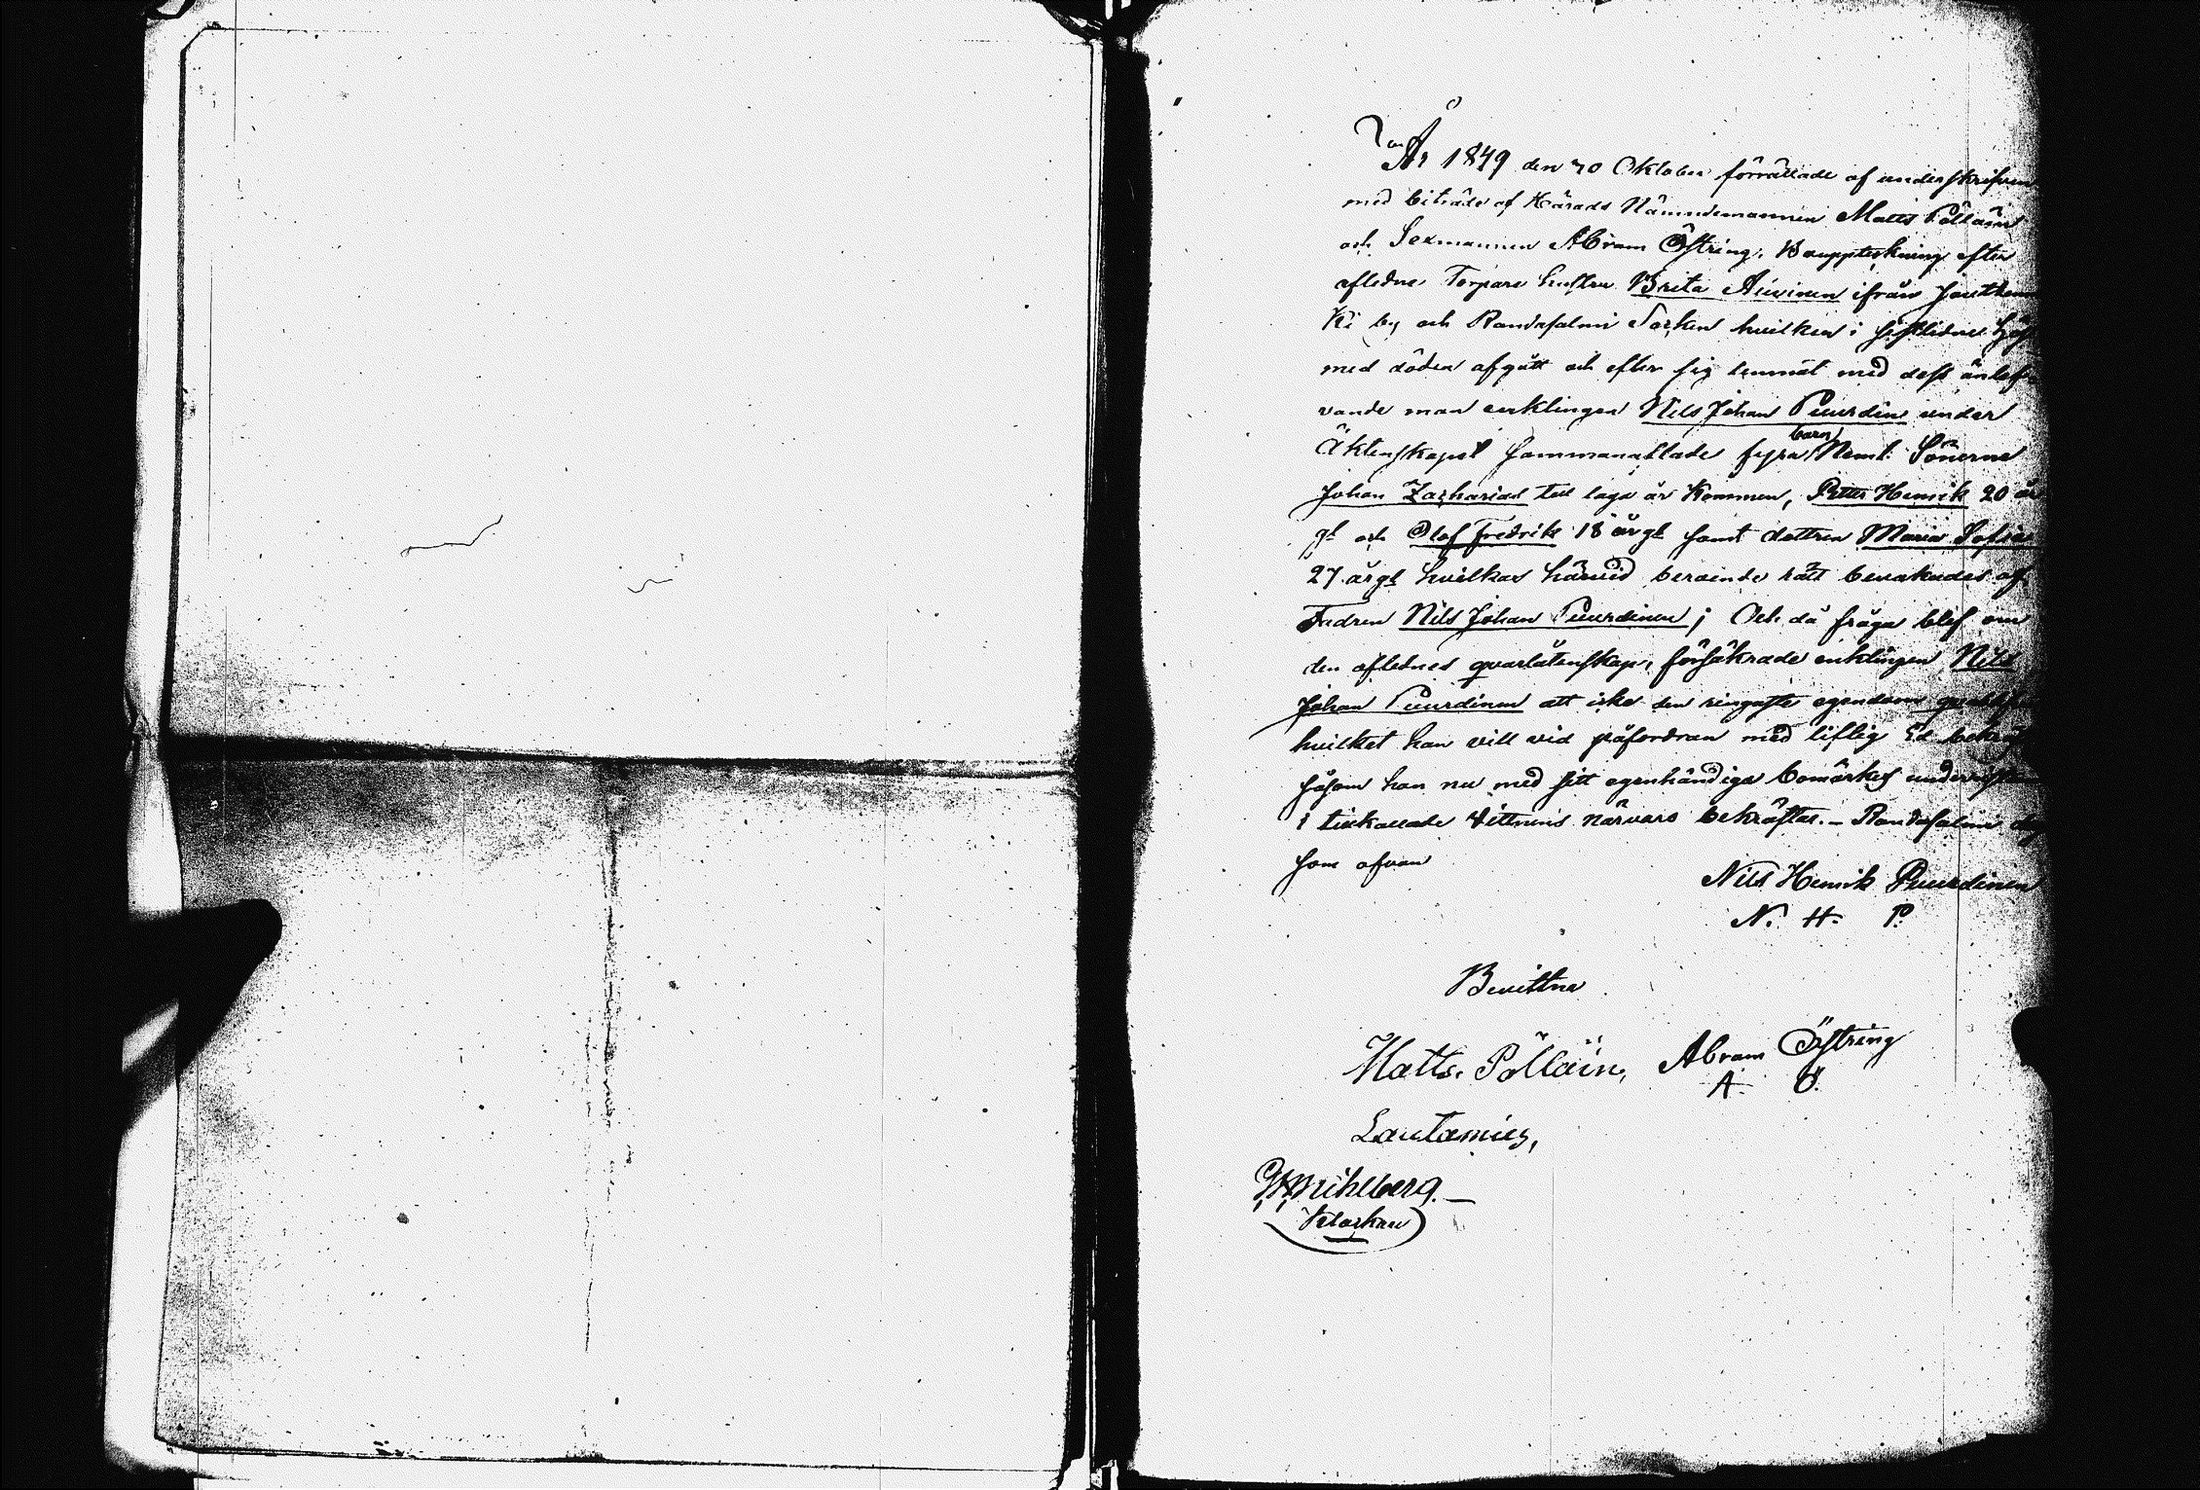 År 1849 den 30 Oktober förrättade af underskrifven
med biträde af Härads Nämndemannen Matts Pölläin
och Sexmannen Abram Östring, Bouppteckning efter
afledne Torpare hustru Brita Auvinen ifrån
Ki by och Randasalmi Socken hvilken i sistlidne
med döden afgått och efter sig lemnat med dess
vande man enklingen Nils Johan Puurdine under
Äktenskapet sammanaflade fyra barn Neml: Sönerne
Johan Zacharias till laga år Kommen, Petter Henrik 20 år
gl och Olof Fredrik 18 årgl samt dottren Maria Sofia
27 årgl hvilkas härvid beroende rätt bevakades af
Fadren Nils Johan Puurdinen; Och då fråga blef om
den aflednes qvarlåtenskap, försäkrade enklingen Nils
Johan Puurdinen att icke den ringaste egendom
hvilket han vill vid påfordran med liflig Ed
såsom han nu med sitt egenhändiga bomärkes
i tillkallade Vittnens närvaro bekräftar. – Randasalmi dag
som ofvan
Nils Henrik Puurdinen
N. H. P.
Bevittna
Matts. Pölläin, Abram Östring
A. Ö.
Lautamies,
Mihlberg. –
Klockare